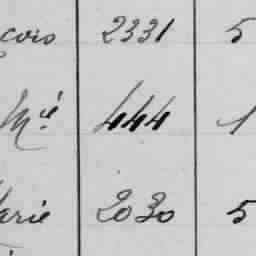 çois 2331 5
Mié 444 1
arie 2030 5